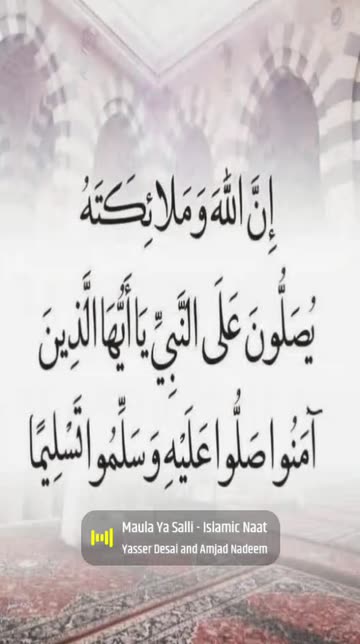 إِنَّ اللَّهَ وَمَلَائِكَتَهُ
يُصَلُّونَ عَلَى النَّبِيِّ يَا أَيُّهَا الَّذِينَ
آمَنُوا صَلُّوا عَلَيْهِ وَسَلِّمُوا تَسْلِيمًا
Maula Ya Salli - Islamic Naat
Yasser Desai and Amjad Nadeem